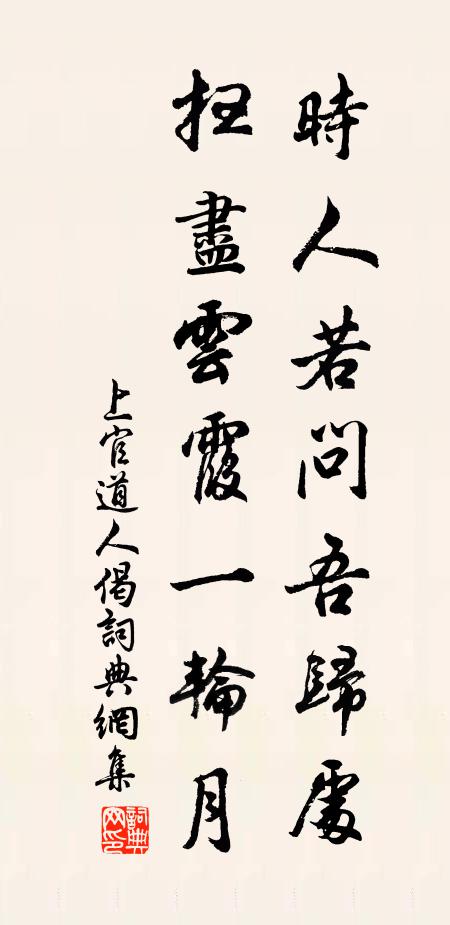 時人若問吾歸處
掃盡雲霞一輪月
上官道人偈詞典網集
詞典網印